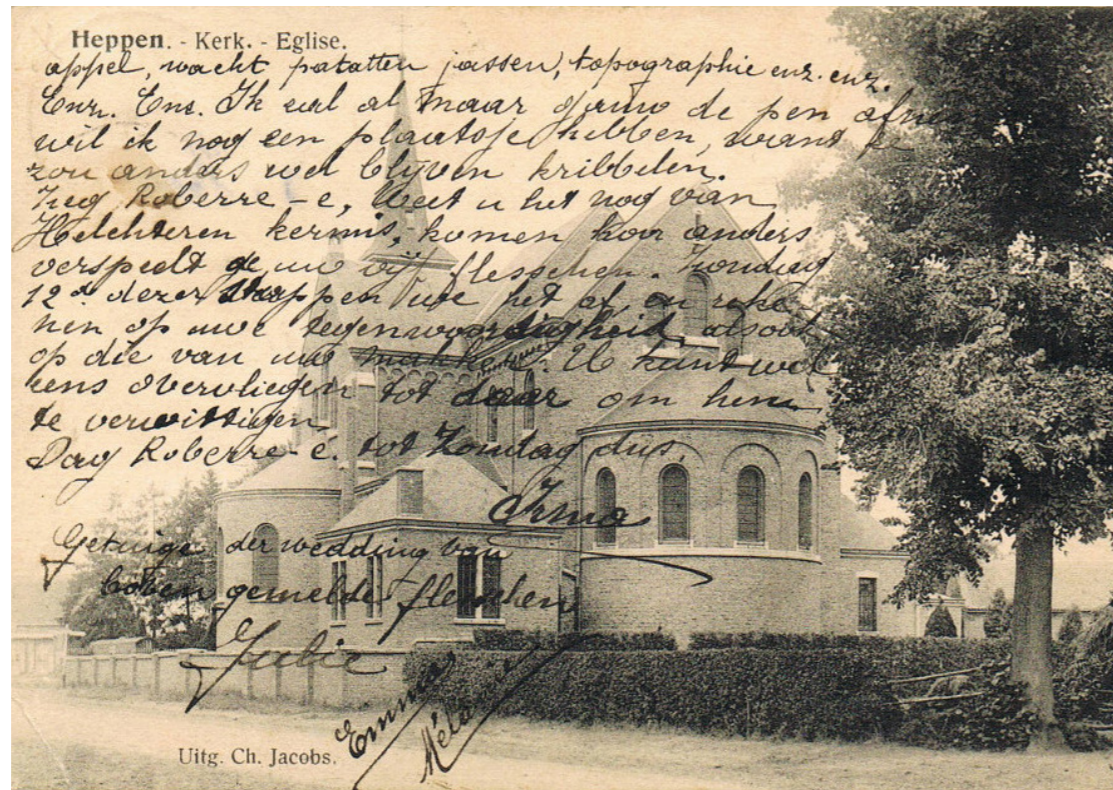 Heppen. - Kerk. - Eglise.
appel, wacht patatten jassen, topographie enz. enz.
Enz. Enz. Ik zal al maar gauw de pen
wil ik nog een plaatsje hebben, want
zou anders wel blijven kribbelen.
Zeg Roberre-e, weet u het nog van
Helchteren kermis, komen hoor anders
verspeelt ge uw vijf flesschen. Zondag
12n dezer stappen we het af, en reke
nen op uwe tegenwoordigheid, alsook
op die van uw makker. U kunt wel
eens overvliegen tot daar om hem
te verwittigen.
Dag Roberre-é. tot Zondag dus.
Irma
Getuige der wedding van
boven gemelde flesschen
Julie
Emma
Uitg. Ch. Jacobs.